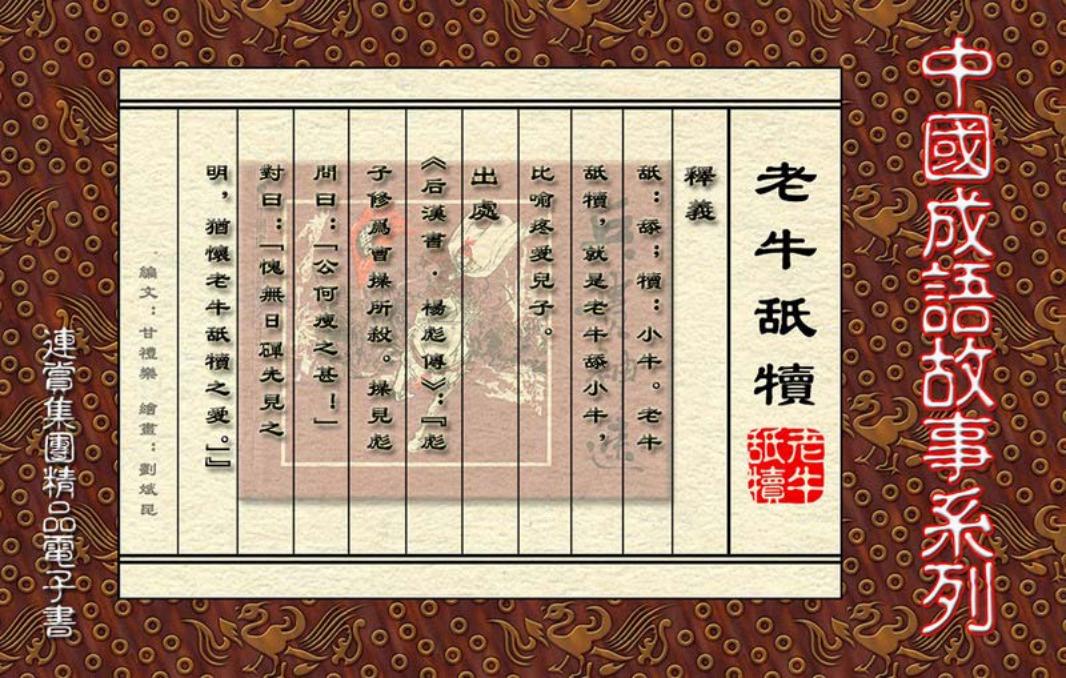 中國成語故事系列
老牛舐犢
老牛
舐犢
釋義
舐：舔；犢：小牛。老牛
舐犢，就是老牛舔小牛，
比喻疼愛兒子。
出處
《后漢書．楊彪傳》：『彪
子修爲曹操所殺。操見彪
問曰：「公何瘦之甚！」
對曰：「愧無日磾先見之
明，猶懷老牛舐犢之愛。」』
編文：甘禮樂 繪畫：劉斌昆
連賞集團精品電子書